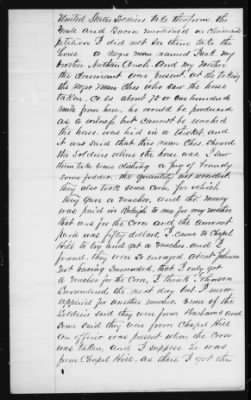 United States Soldiers take therefrom the
Mule and Bacon mentioned in claimants
petition I did not see them take the
horse a negro man named Frank my
brother Nathan Couch And my Mother
the claimant were present at the taking
the Negro Man Ches who saw the horse
taken. Ches is about 75 or one hundred
mile from here, he could be produced
as a witness but cannot be reached
the horse was hid in a thicket and
it was said that this man Ches showed
the Soldiers where the horse was I saw
them take some clothing a jug of brandy
some fodder, the quantity not
they also took some Corn for which
they gave a voucher, and the money
was paid in Raleigh to me for my mother
that was for the Corn and the amount
paid was fifty dollars, I came to Chapel
Hill to try and get a voucher and I
found, they were so enraged about Johnson
not having Surrended, that I only got
a voucher for the Corn, I think Johnson
Surrendered the next day but I never
applied for another voucher. Some of the
Soldiers said they were from and
some said they were from Chapel Hill
An officer was present when the Corn
was taken, and I suppose he was
from Chapel Hill, as there I got the